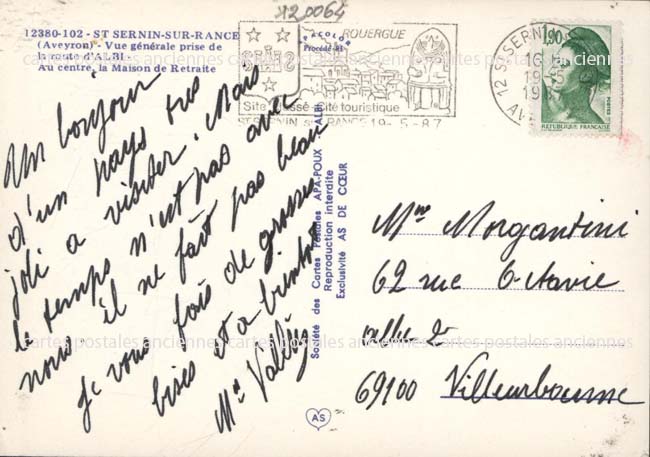 12380-102 - ST SERNIN-SUR-RANCE
(Aveyron) - Vue générale prise de
la route d'ALBI -
Au centre, la Maison de Retraite
120064
ROUERGUE
Site classé - cité touristique
ST SERNIN sur RANCE 19-5-87
12 ST SERNIN
19-5
1,90
POSTES
REPUBLIQUE FRANÇAISE
Un bonjour
d'un pays très
joli a visiter. Mais
le temps n'est pas avec
nous il ne fait pas beau
je vous fais de grosses
bises et a bientot
Mme Vallès
Société des Cartes Postales APA-POUX ALBI
Reproduction interdite
Exclusivité AS DE CŒUR
AS
Mme Morgantini
62 rue Octavie
allée 2
69100 Villeurbanne
cartes postales anciennes cartes postales anciennes cartes postales anciennes